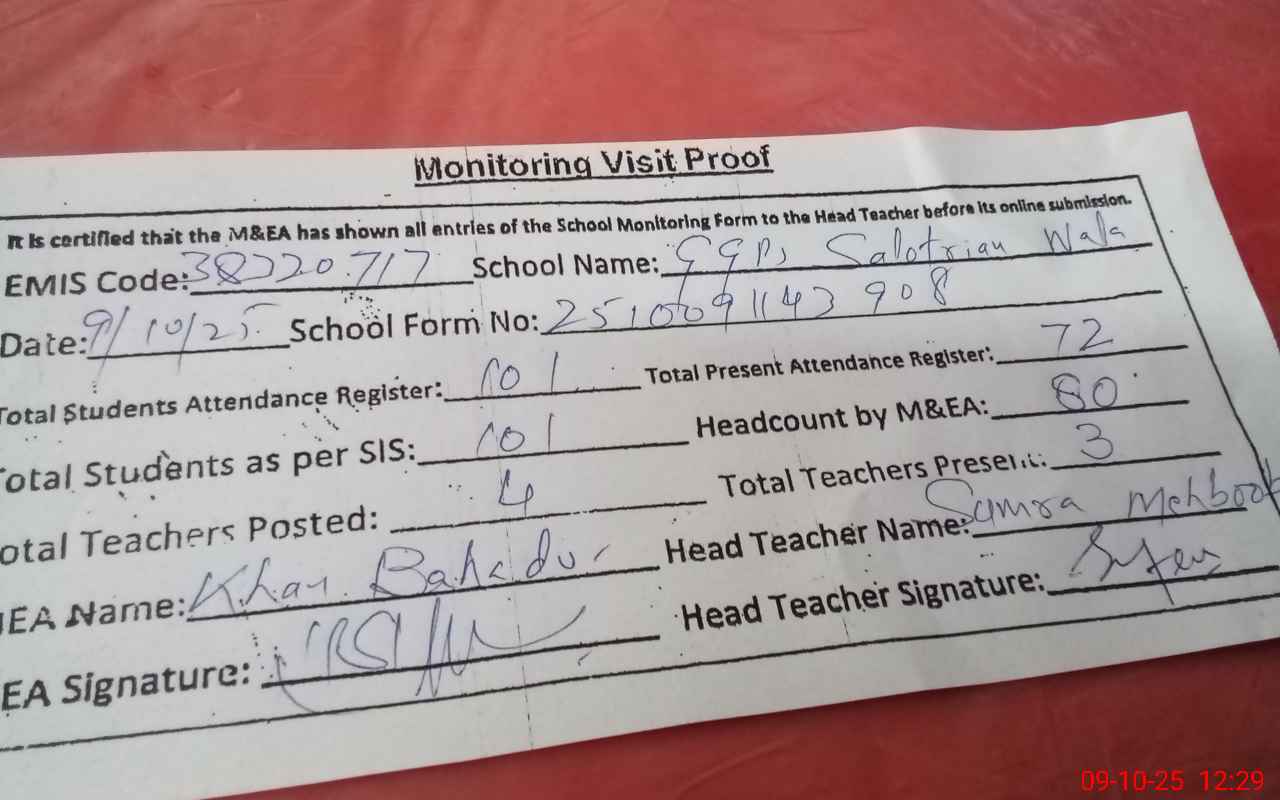 Monitoring Visit Proof
It is certified that the M&EA has shown all entries of the School Monitoring Form to the Head Teacher before its online submission.
EMIS Code: 38220717 School Name: GGPS Salotrian Wala
Date: 9/10/25 School Form No: 2510091143908
Total Students Attendance Register: 101 Total Present Attendance Register: 72
Total Students as per SIS: 101 Headcount by M&EA: 80
otal Teachers Posted: 4 Total Teachers Present: 3
EA Name: Khan Bahadur Head Teacher Name: Sumra Mehboob
EA Signature: Head Teacher Signature:
09-10-25 12:29